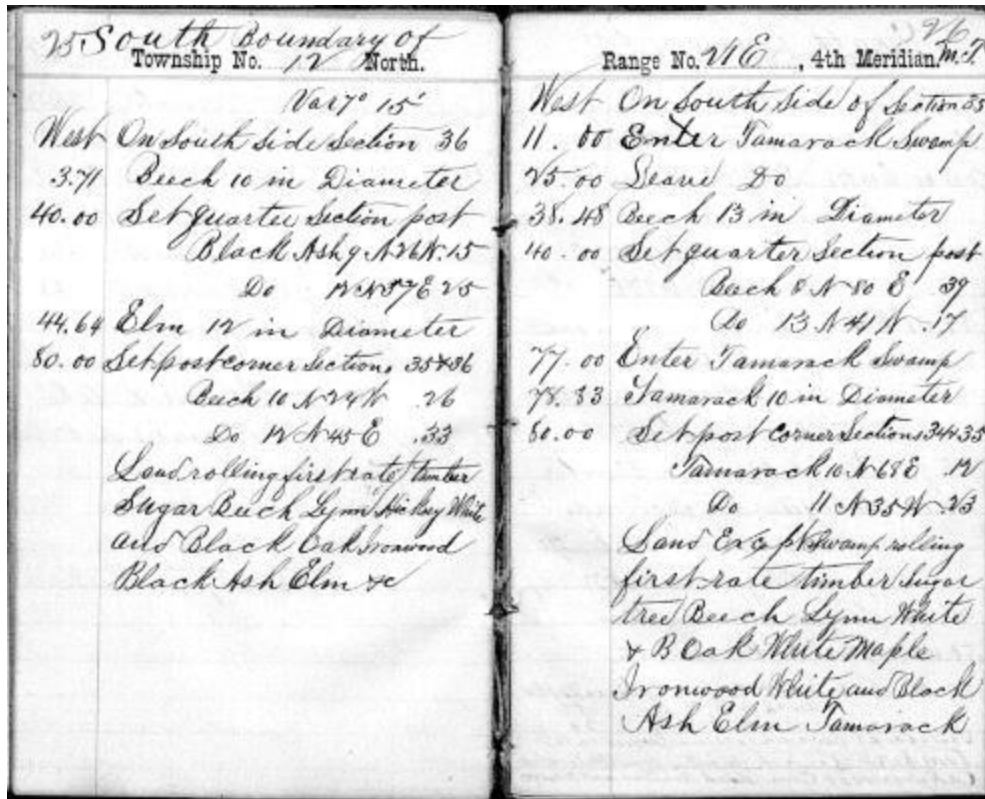 25 South Boundary of
Township No. 12 North.
Var 7° 15'
West On South Side Section 36
3.71 Beech 10 in Diameter
40.00 Set quarter Section post
Black Ash 9 N 26 W .15
Do 12 N 57 E 25
44.64 Elm 12 in Diameter
80.00 Set post corner Sections 35 & 36
Beech 10 N 24 W .26
Do 12 N 45 E .33
Land rolling first rate timber
Sugar Beech Lynn Hickory White
and Black Oak Ironwood
Black Ash Elm &c
26
Range No. 21 E , 4th Meridian.
West On South Side of Section 35
11.00 Enter Tamarack Swamp
25.00 Leave Do
38.48 Beech 13 in Diameter
40.00 Set quarter Section post
Beech 8 N 80 E .39
Do 13 N 41 W .17
77.00 Enter Tamarack Swamp
78.33 Tamarack 10 in Diameter
80.00 Set post Corner Sections 34 & 35
Tamarack 10 N 68 E 12
Do 11 N 35 W 23
Land Except Swamp rolling
first rate timber Sugar
tree Beech Lynn White
& B Oak White Maple
Ironwood White and Black
Ash Elm Tamarack